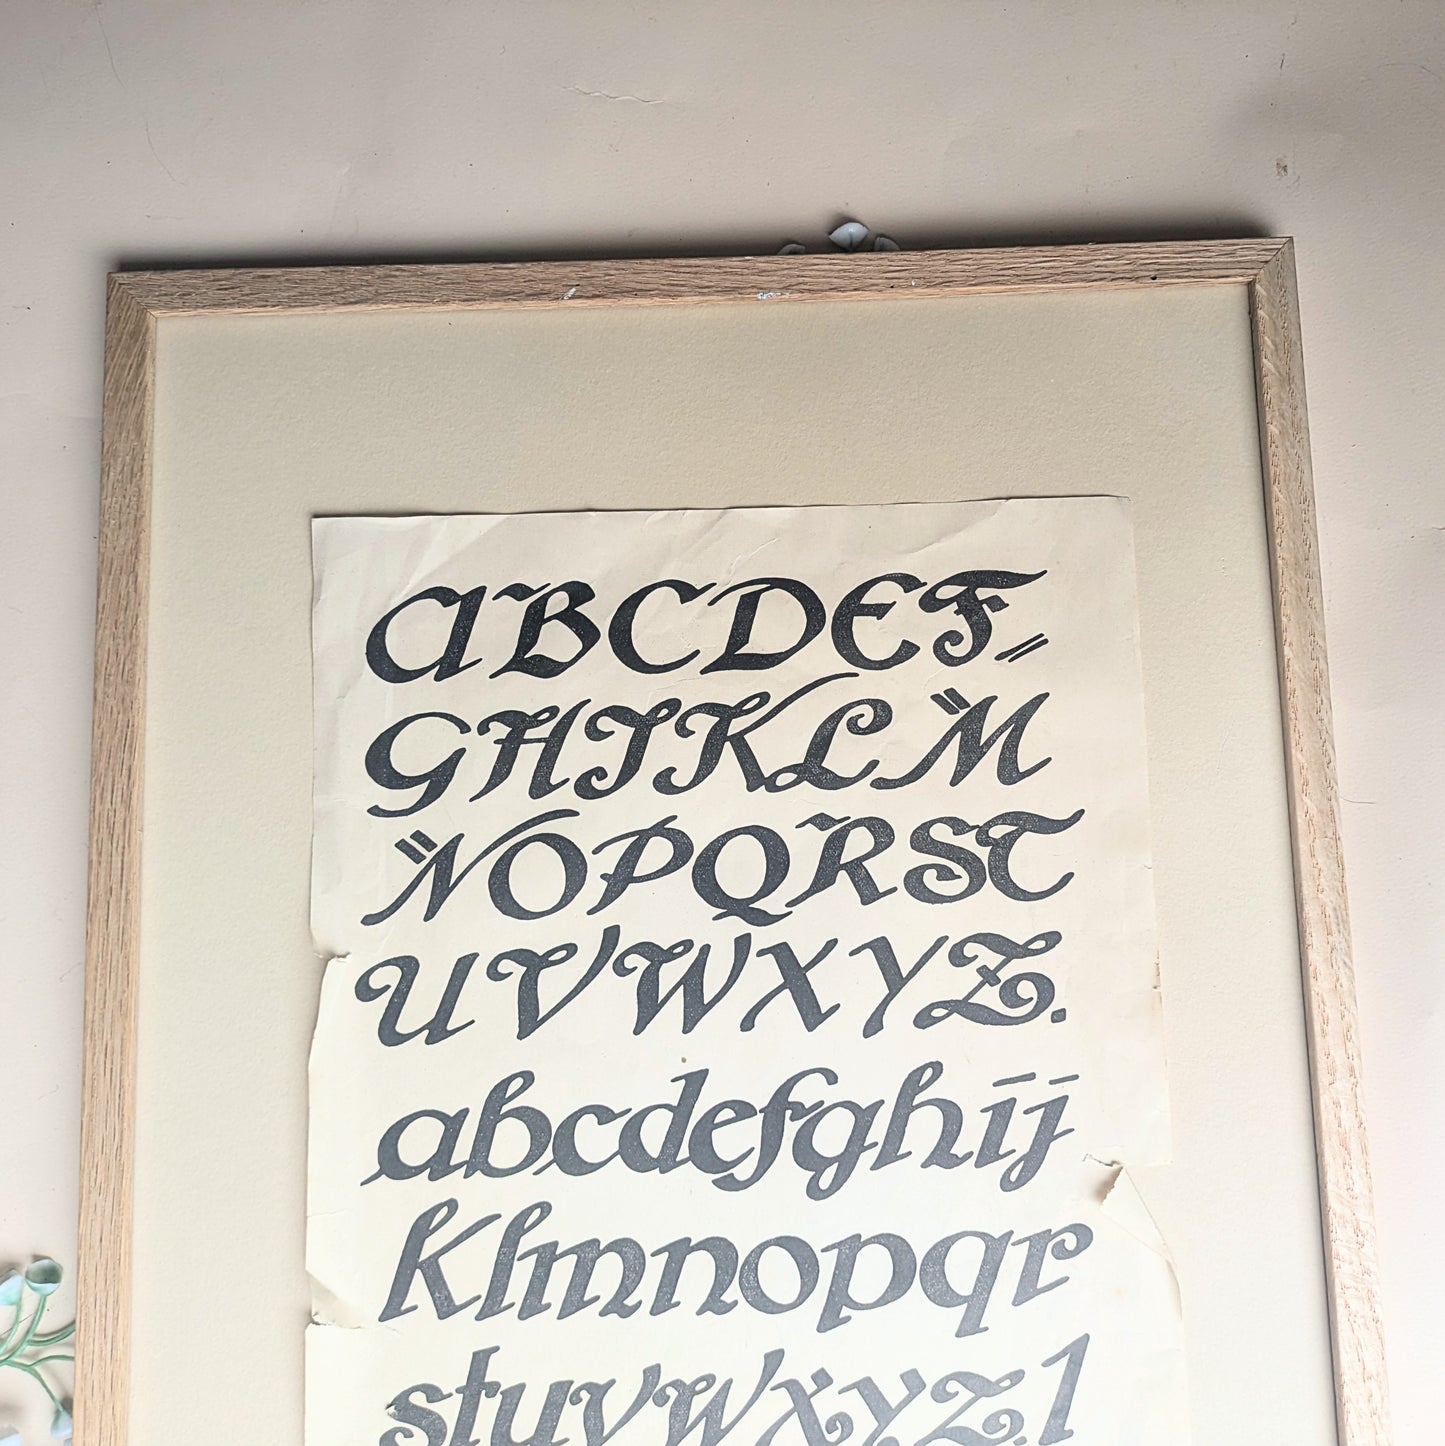 ABCDEF⸗
GHIKLM
NOPQRST
UVWXYZ.
abcdefghij
klmnopqr
stuvwxyz.1